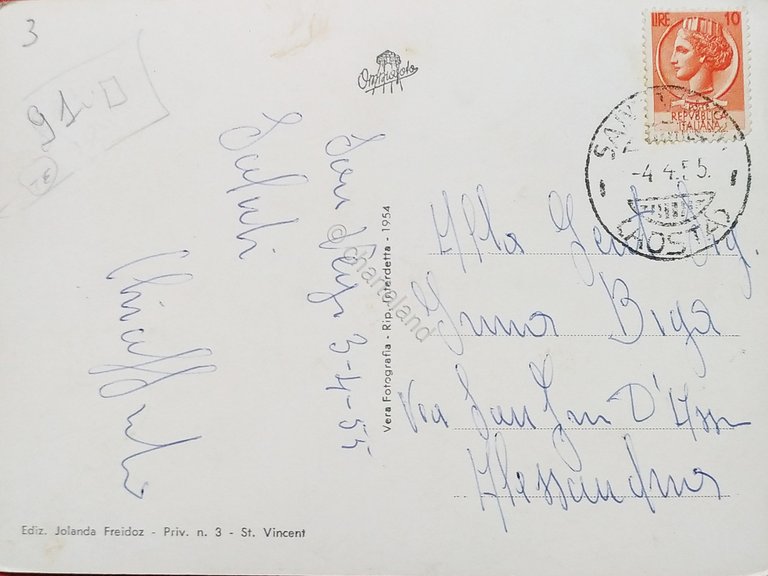 3
91
Omniafoto
LIRE 10
POSTE
REPVBBLICA
ITALIANA
SAINT
-4.4.55.
(AOSTA)
Saluti
3-4-55
© Chartaland
Vera Fotografia - Rip. Interdetta - 1954
Alla Gent. Sig.
Irma Biga
Via San
Alessandria
Ediz. Jolanda Freidoz - Priv. n. 3 - St. Vincent